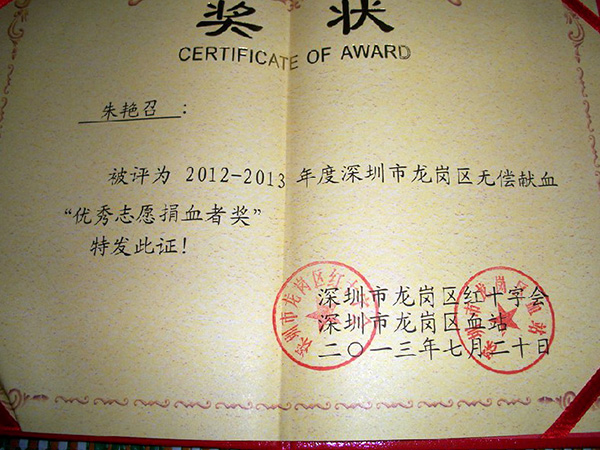 奖 状
CERTIFICATE OF AWARD
朱艳召：
被评为 2012-2013 年度深圳市龙岗区无偿献血
“优秀志愿捐血者奖”
特发此证！
深圳市龙岗区红十字会
深圳市龙岗区血站
二〇一三年七月二十日